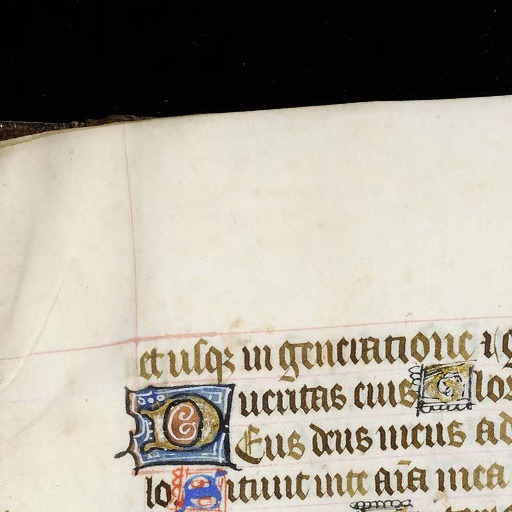 et usqꝫ in generatione
ueritas eius Glor
DEus deus meus ad
lo Sitiuit in te aīa mea